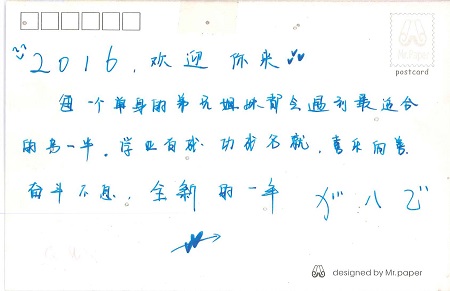 postcard
2016，欢迎你来
每一个单身的弟兄姐妹都会遇到最适合
的另一半。学业有成 功成名就，喜乐向善
奋斗不息，全新的一年 がんば
designed by Mr.paper